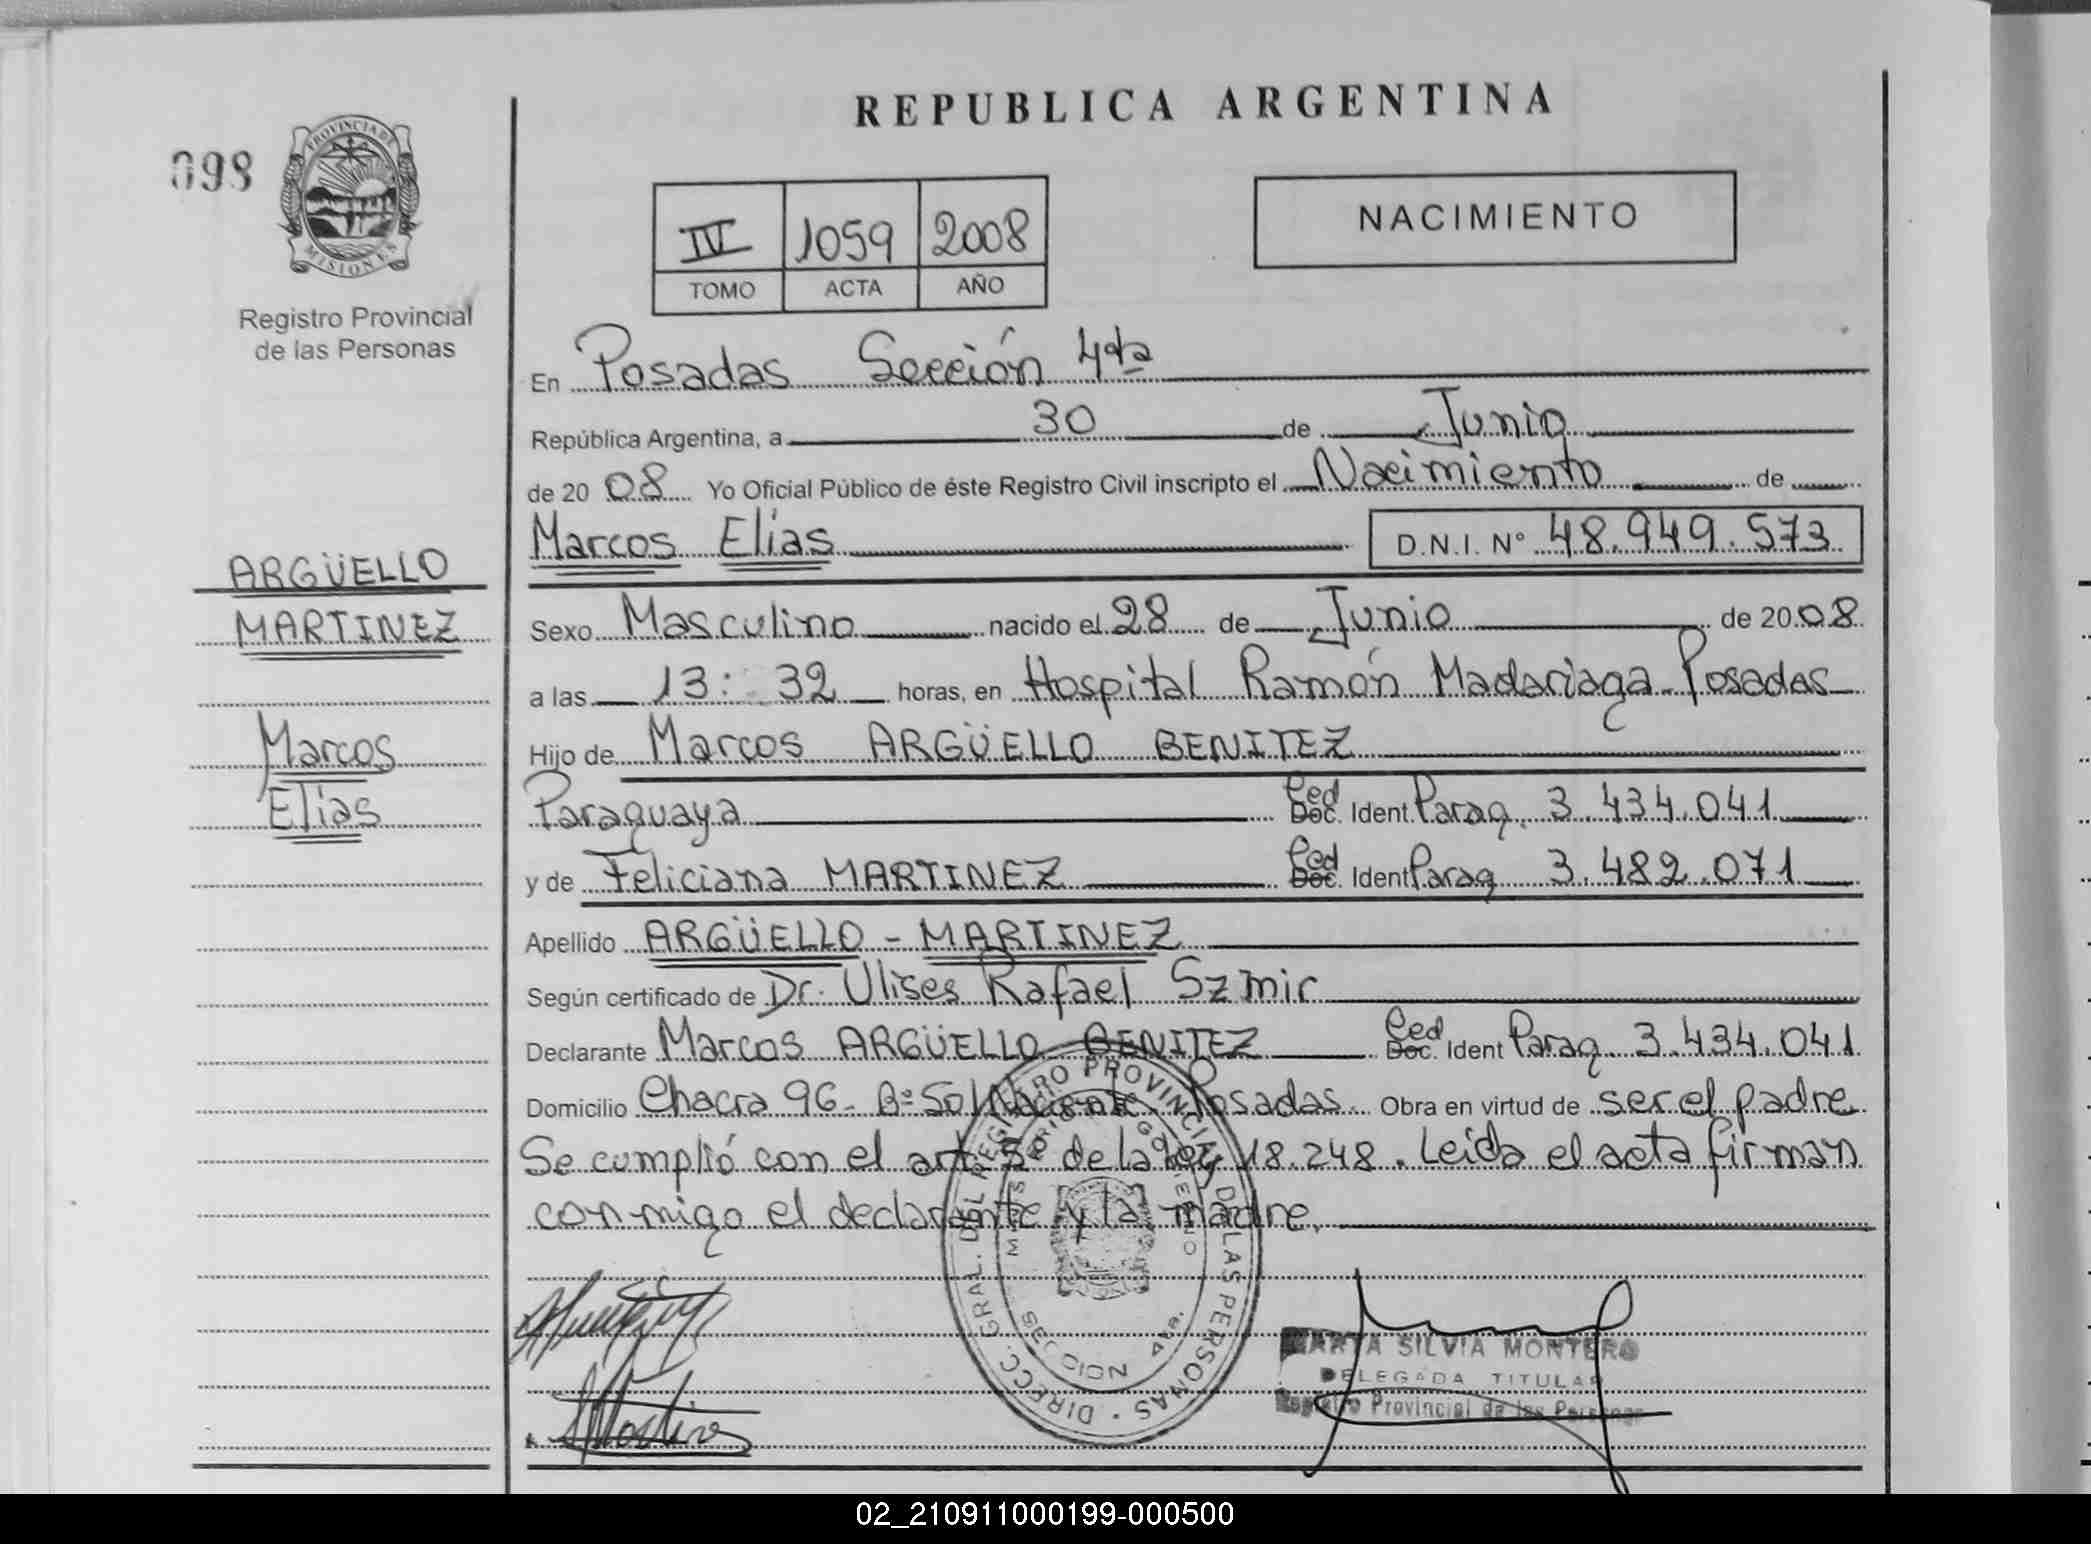 REPUBLICA ARGENTINA
098
PROVINCIA DE
MISIONES
Registro Provincial
de las Personas
IV 1059 2008
TOMO ACTA AÑO
NACIMIENTO
En Posadas Sección 4ta
República Argentina, a 30 de Junio
de 20 08 Yo Oficial Público de éste Registro Civil inscripto el Nacimiento de
Marcos Elías D.N.I. Nº 48.949.573
ARGÜELLO
MARTINEZ
Marcos
Elías
Sexo Masculino nacido el 28 de Junio de 2008
a las 13: 32 horas, en Hospital Ramón Madariaga. Posadas
Hijo de Marcos ARGÜELLO BENITEZ
Paraguaya Ced Doc. Ident Parag. 3.434.041
y de Feliciana MARTINEZ Ced Doc. Ident Parag 3.482.071
Apellido ARGÜELLO - MARTINEZ
Según certificado de Dr. Ulises Rafael Szmir
Declarante Marcos ARGÜELLO BENITEZ Ced Doc. Ident Parag 3.434.041
Domicilio Chacra 96. Bº Sol Naciente. Posadas Obra en virtud de ser el padre
Se cumplió con el art. 5º de la ley 18.248. Leída el acta firman
conmigo el declarante y la madre.
DIRECC. GRAL. DEL REGISTRO PROVINCIAL DE LAS PERSONAS
MARTA SILVIA MONTERO
DELEGADA TITULAR
Registro Provincial de las Personas
02_210911000199-000500